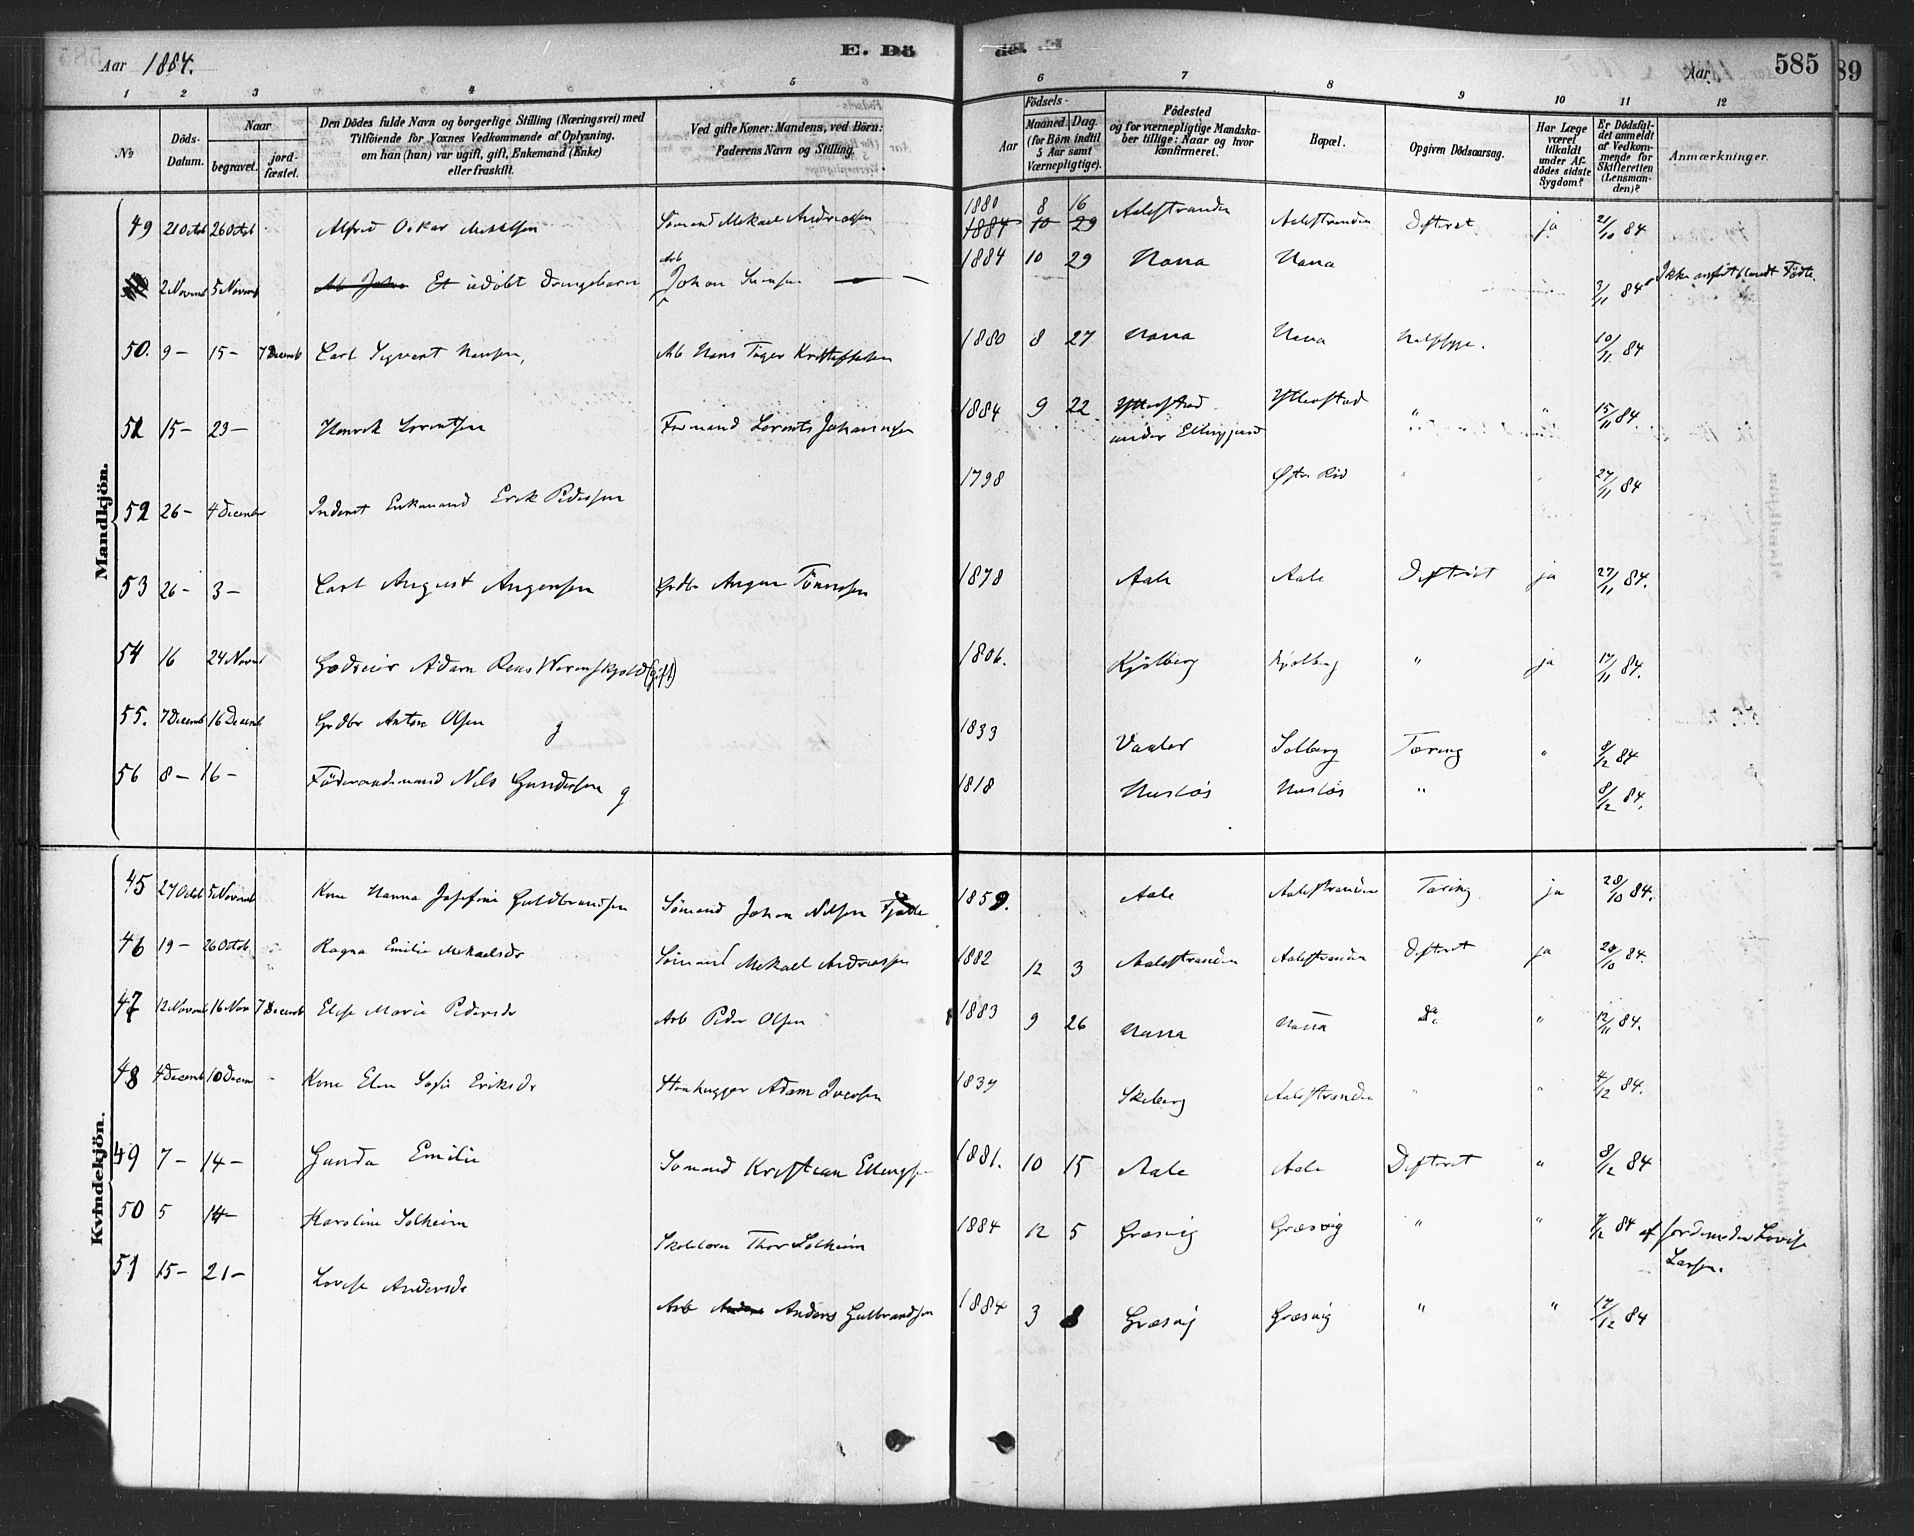 Aar 1884.
E. Dö
del. E.
Aar
585
89
1 2 3 4 5 6 7 8 9 10 11 12
No
Döds-Datum.
Naar
begravet.
jord-fæstet.
Den Dödes fulde Navn og borgerlige Stilling (Næringsvei) med
Tilföiende for Voxnes Vedkommende af Oplysning.
om han (hun) var ugift, gift, Enkemand (Enke)
eller fraskilt.
Ved gifte Koner: Mandens, ved Börn:
Faderens Navn og Stilling.
Födsels-
Aar
Maaned. Dag.
(for Börn indtil
5 Aar samt
Værnepligtige).
Födested
og for værnepligtige Mandska-
ber tillige: Naar og hvor
konfirmeret.
Bopæl.
Opgiven Dödsaarsag.
Har Læge
været
tilkaldt
under Af-
dödes sidste
Sygdom?
Er Dödsfal-
det anmeldt
af Vedkom-
mende for
Skifteretten
(Lensman-
den)?
Anmærkninger.
Mandkjön.
49 21 Octob 26 Octob Alfred Oskar Mekelsen Sömand Mekael Andreassen 1880 8 16 Aalestranden Aalestranden Difterit ja 21/10 84
1884 10 29
2 Novemb 5 Novemb Et udöbt Drengebarn Arb Johan Svensen 1884 10 29 Nara Nara 3/11 84 Ikke anfört blandt Födte.
50. 9 – 15 – 7 Decemb Carl Sigvart Hansen, Arb Hans Tiger Kristoffersen 1880 8 27 Nara Nara Halssyge. 10/11 84
51 15 – 23 – Henrik Lorentsen Formand Lorents Johannesen 1884 9 22 Ytterstad under Ellingaard Ytterstad " " 15/11 84.
52 26 – 4 December Inderst Enkemand Erik Pedersen 1798 Östre Röd " 27/11 84
53 26 – 3 – Carl August Augensen Grdbr Augen Tönnesen 1878 Aale Aale Difterit ja 27/11 84.
54 16 24 Novmb Godseier Adam Rens Werenskjold (gift) 1806. Kjölberg Kjölberg " ja 17/11 84.
55. 7 Decemb 16 Decemb Grdbr Anton Olsen g 1833 Vaaler Solberg Tæring " 9/12 84
56 8 – 16 – Föderaadsmand Nils Gundersen g 1818 Huslös Huslös " 8/12 84.
Kvindekjön.
45 27 Octob 5 Novemb Kone Hanna Josefine Guldbrandsen Sömand Johan Nilsen Fjelle 1859. Aale Aalestranden Tæring ja 28/10 84.
46 19 – 26 Octob Ragna Emilie Mekaelsdr Sömand Mekael Andreassen 1882 12 3 Aalestranden Aalestranden Difterit ja 20/10 84.
47 12 Novemb 16 Nov 7 Decemb Elise Marie Pedersdr Arb Peder Olsen 1883 9 26 Nara Nara do " 12/11 84.
48 4 Decemb 10 Decem Kone Elen Sofie Eriksdr Stenhugger Adam Iversen 1834 Skeberg Aalestranden " " 4/12 84.
49 7 – 14 – Gunda Emilie Sömand Kristian Ellingsen 1881. 10 15 Aale Aale Difterit " 8/12 84
50 5 14 – Karoline Solheim Skolelærer Thor Solheim 1884 12 5 Græsvig Græsvig " " 7/12 84 af Jordemoder Lovise Larsen.
51 15 – 21 – Lovise Andersdr Arb Anders Gulbrandsen 1884 3 8 Græsvig Græsvig " " 17/12 84